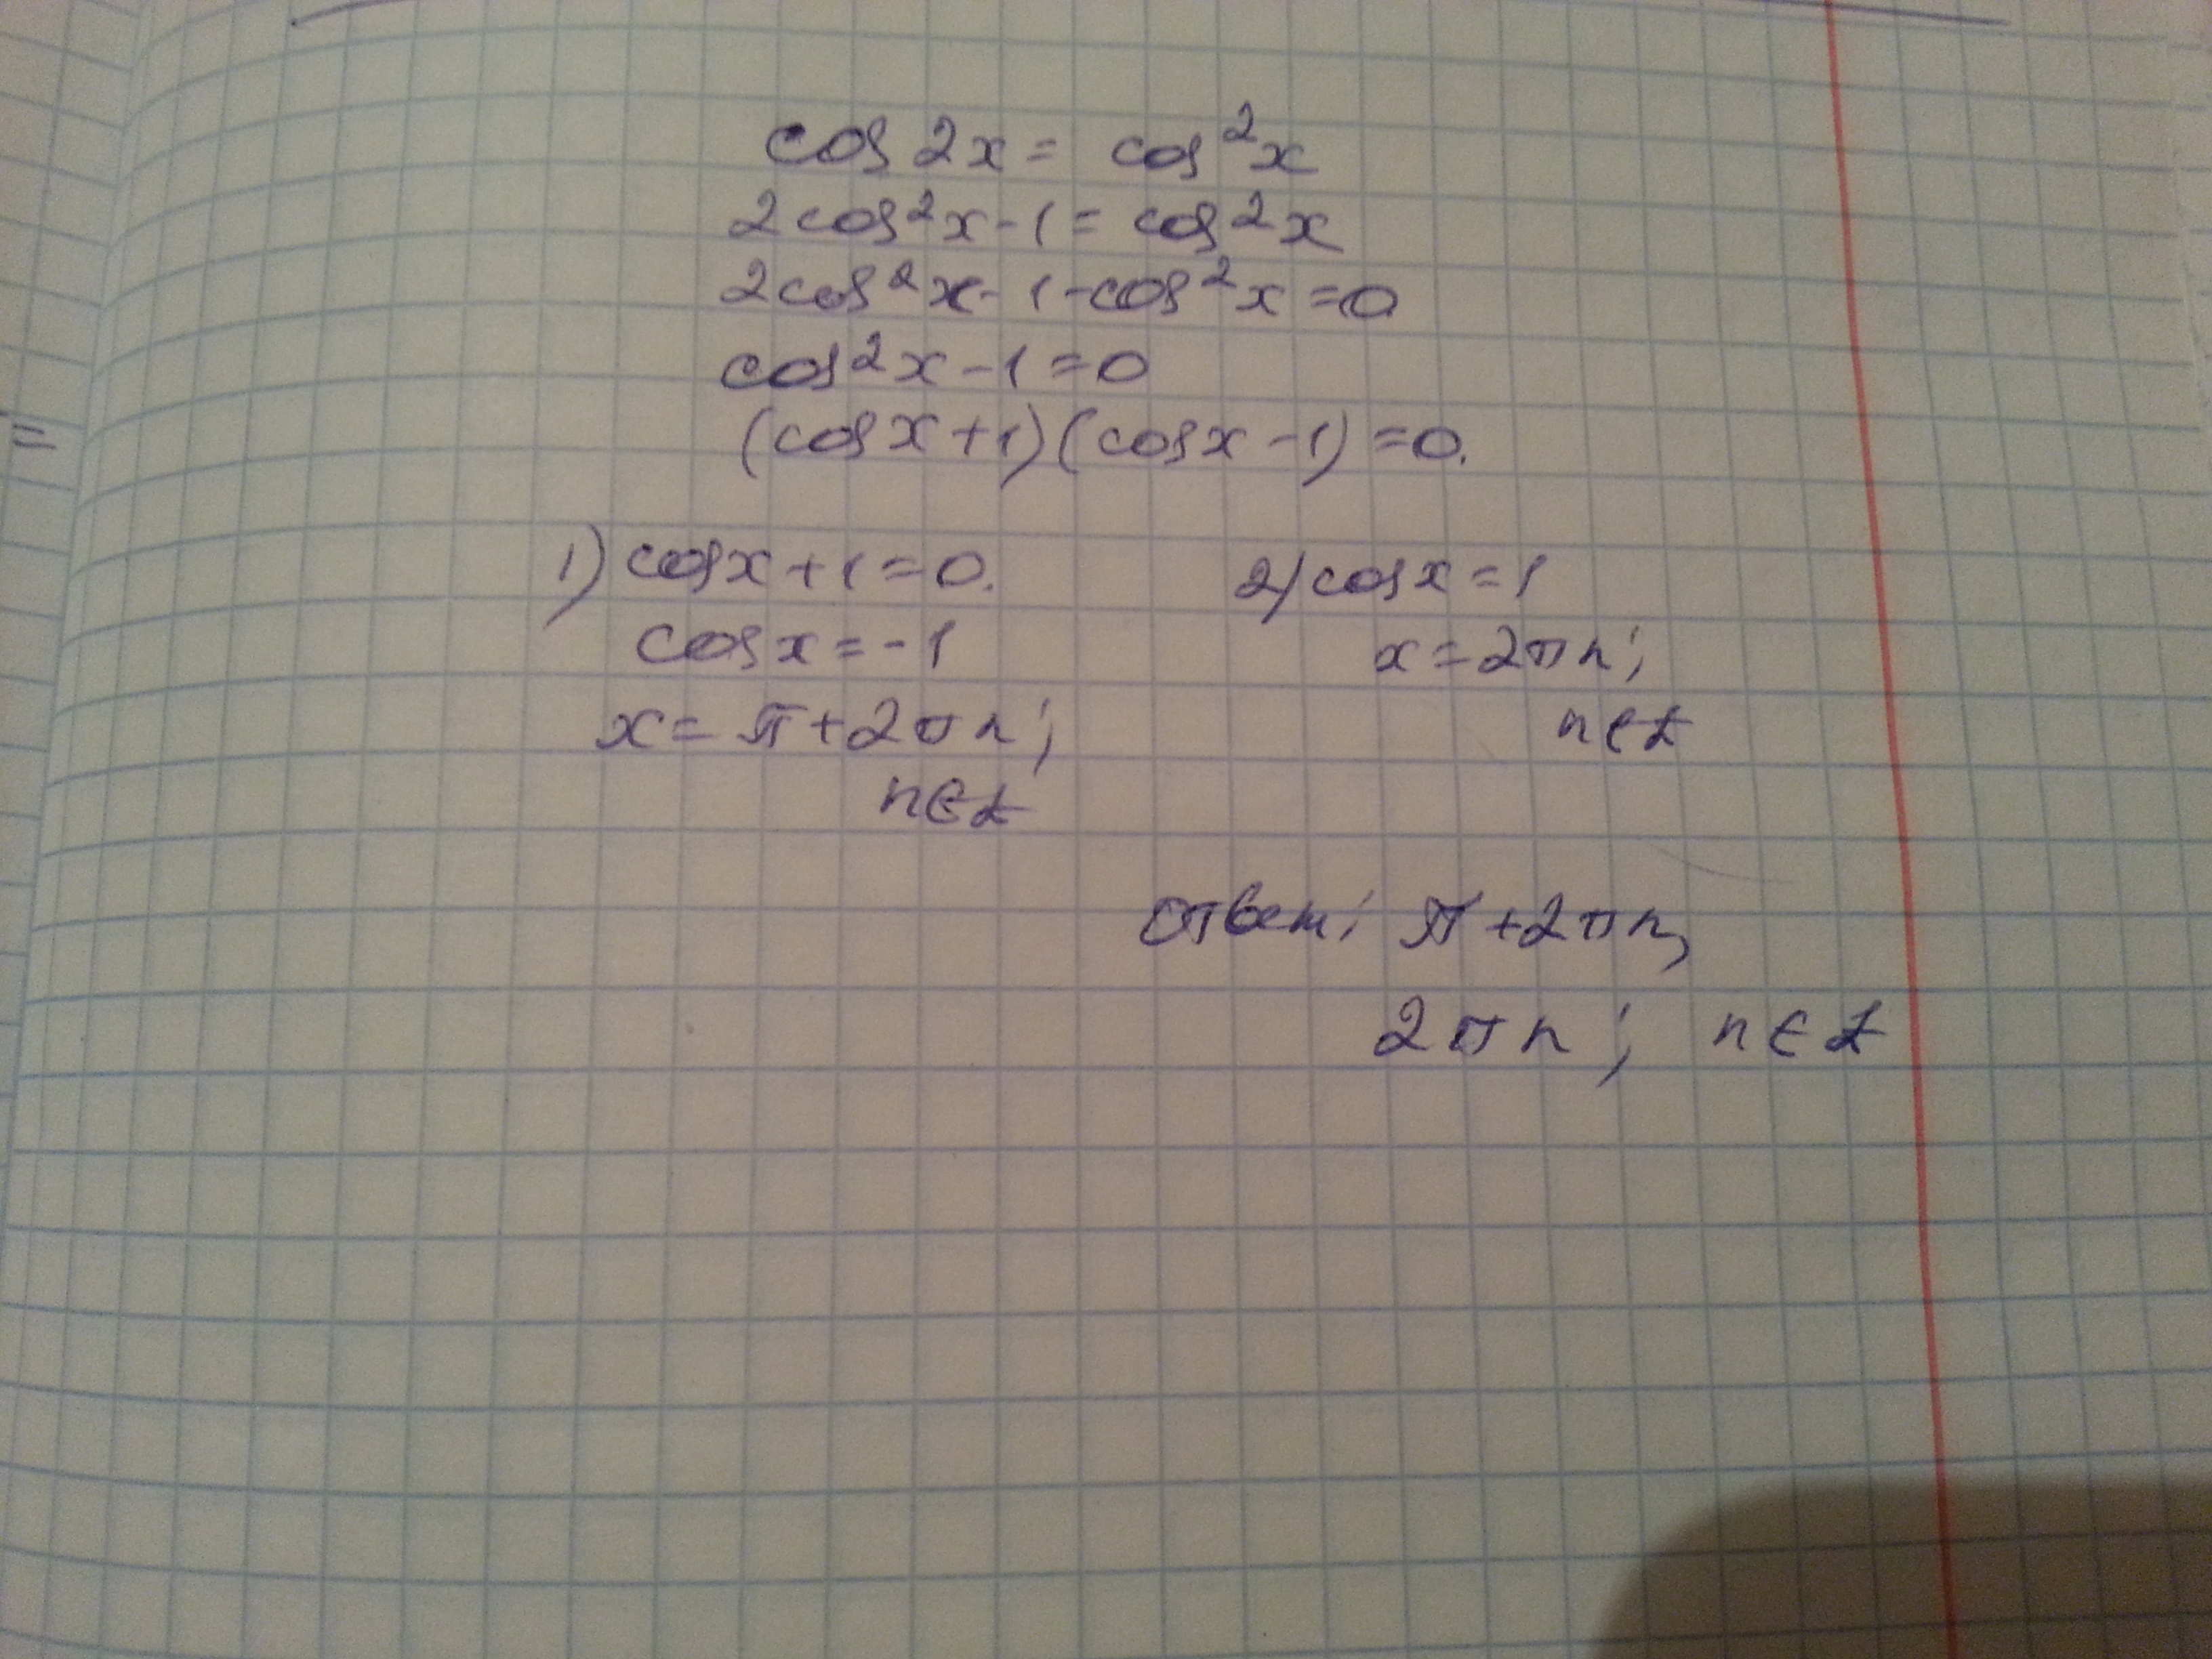 =
cos 2x = cos²x
2cos²x - 1 = cos²x
2cos²x - 1 - cos²x = 0
cos²x - 1 = 0
(cos x + 1)(cos x - 1) = 0.
1) cos x + 1 = 0.
cos x = -1
x = π + 2πn;
n∈Z
2) cos x = 1
x = 2πn;
n∈Z
ответ: π + 2πn,
2πn; n∈Z